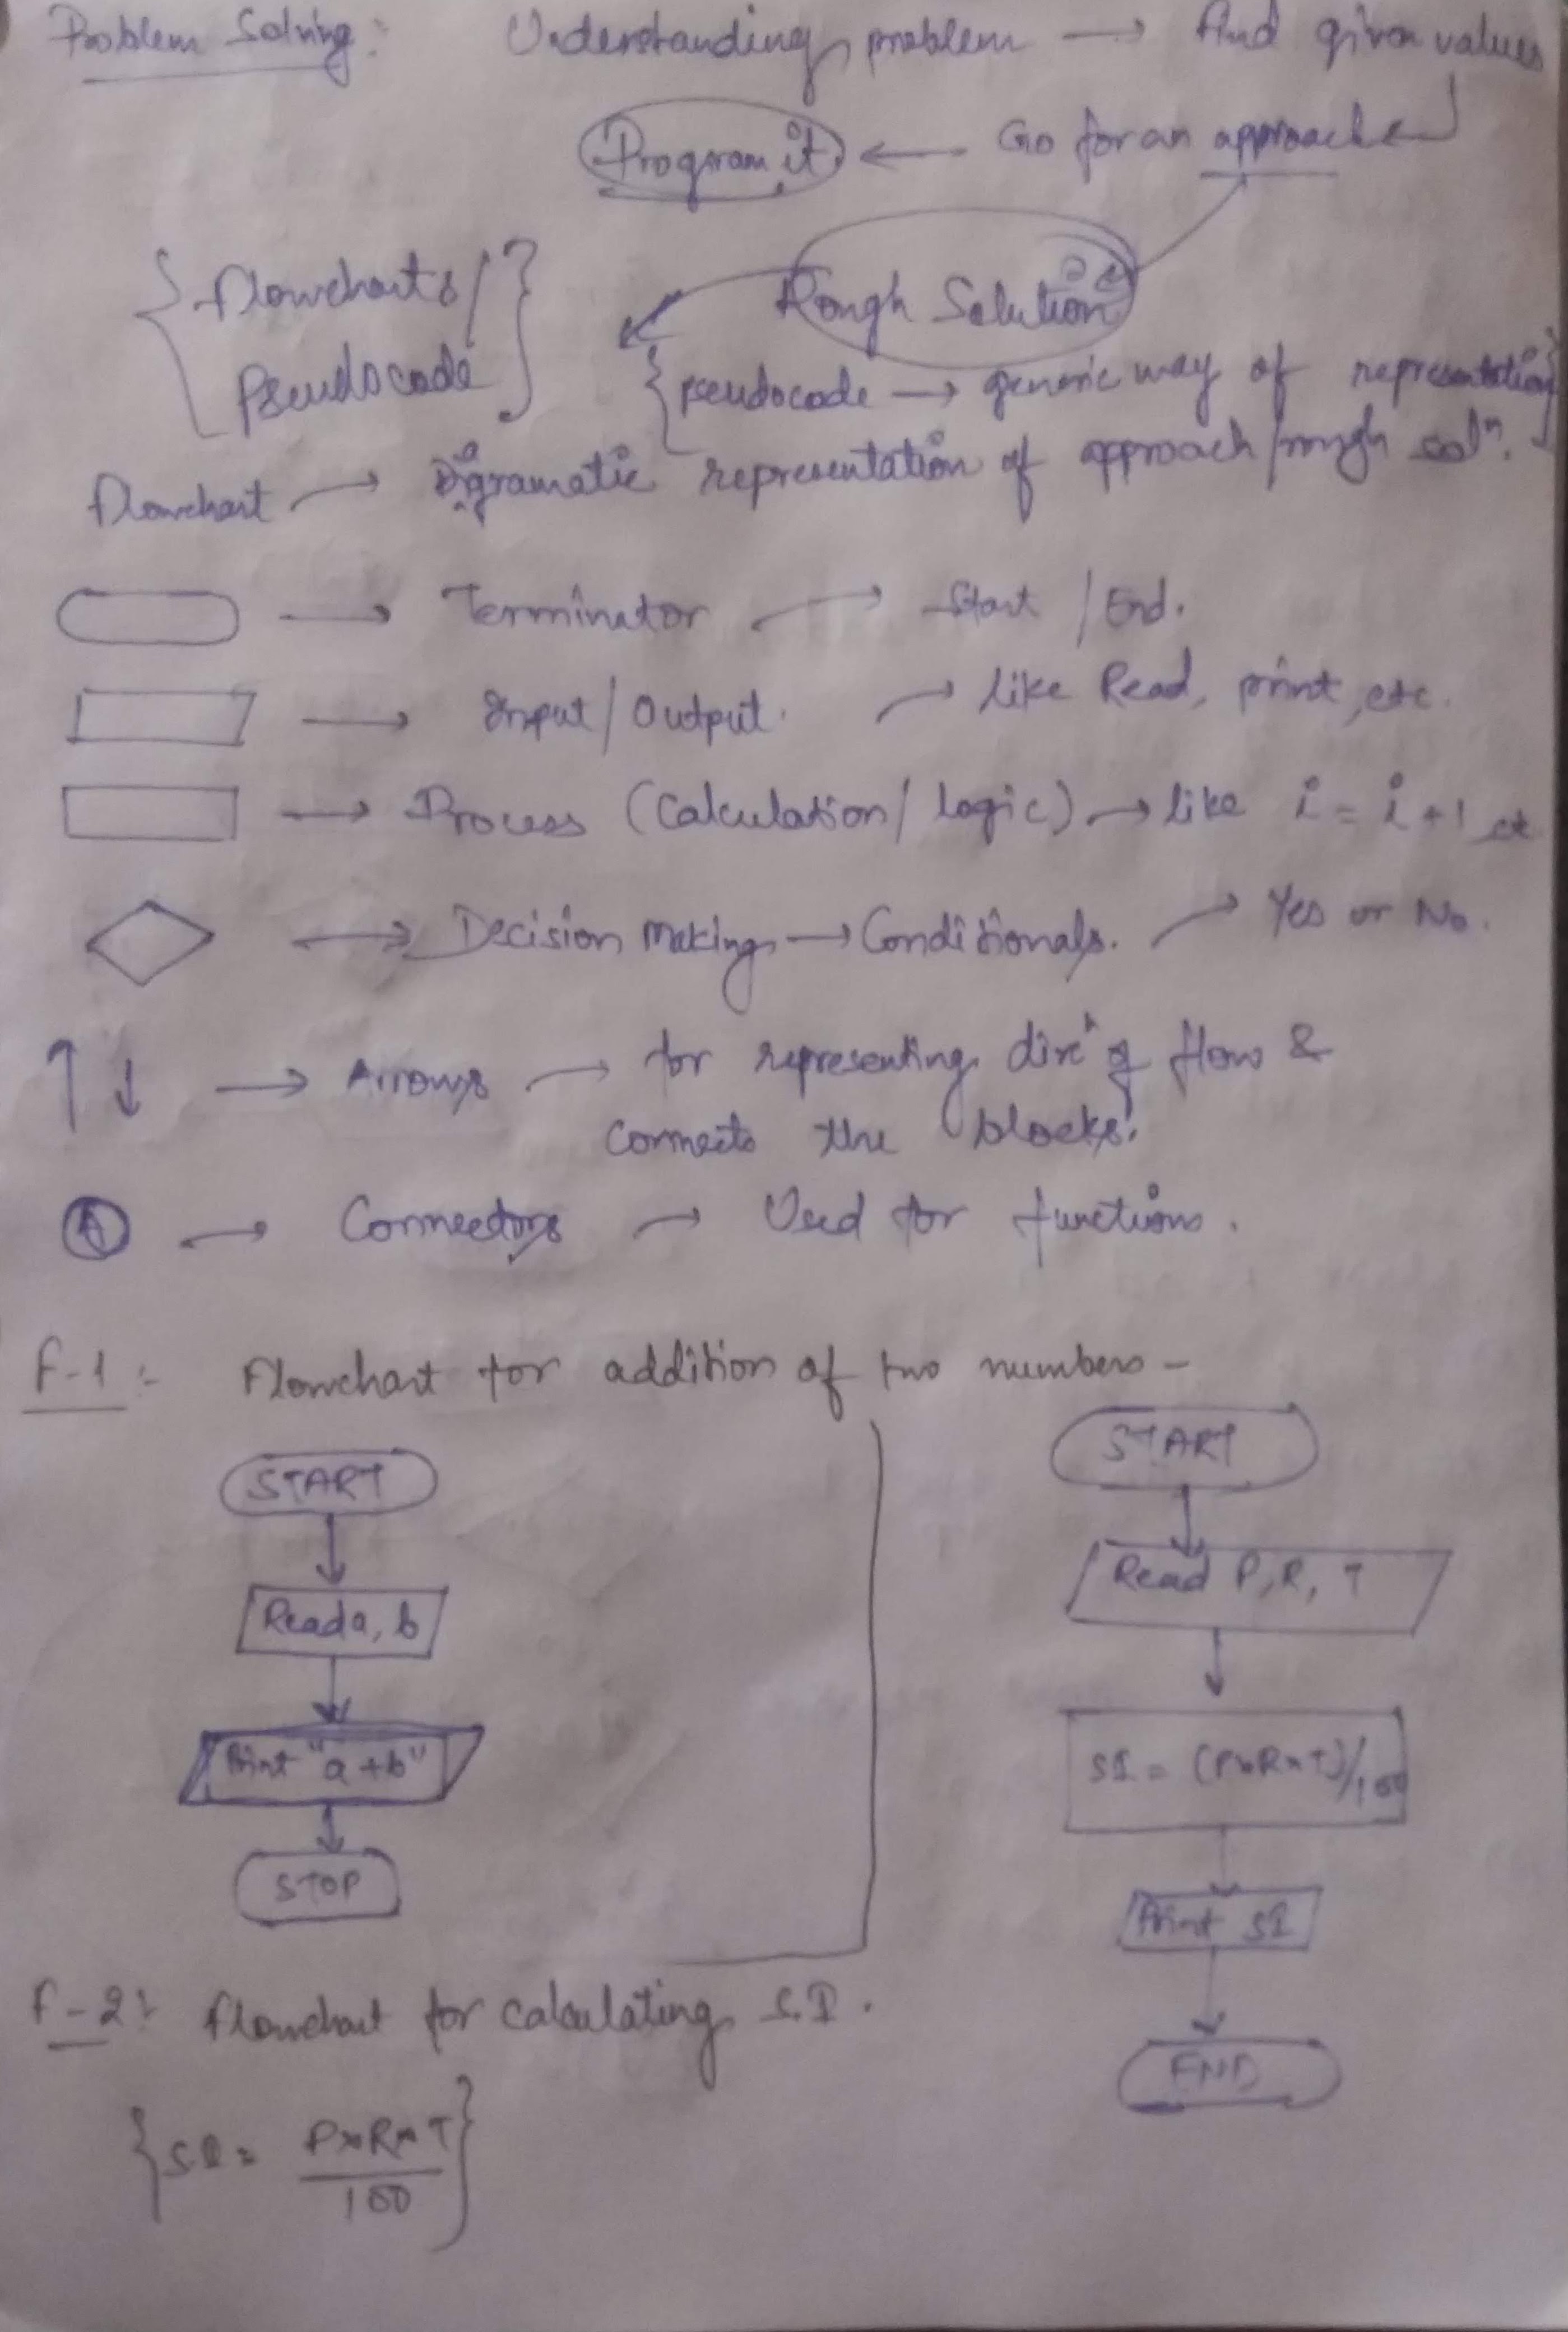 Problem Solving: Understanding problem → find given values
Program it ← Go for an approach
{ Flowcharts / } Rough Solution
Pseudocode { pseudocode → generic way of representation }
Flowchart → Digramatic representation of approach / rough solⁿ.
→ Terminator → Start / End.
→ Input / Output. → like Read, print, etc.
→ Process (Calculation / logic) → like i = i + 1 etc
→ Decision Making → Conditionals. → Yes or No.
↑ ↓ → Arrows → for representing dirⁿ of flow &
connects the blocks.
A → Connectors → Used for functions.
F-1 :- Flowchart for addition of two numbers -
START
Read a, b
Print "a+b"
STOP
START
Read P, R, T
SI = (P×R×T)/100
Print SI
END
F-2 : Flowchart for calculating S.I.
{ S.I = P×R×T }
100